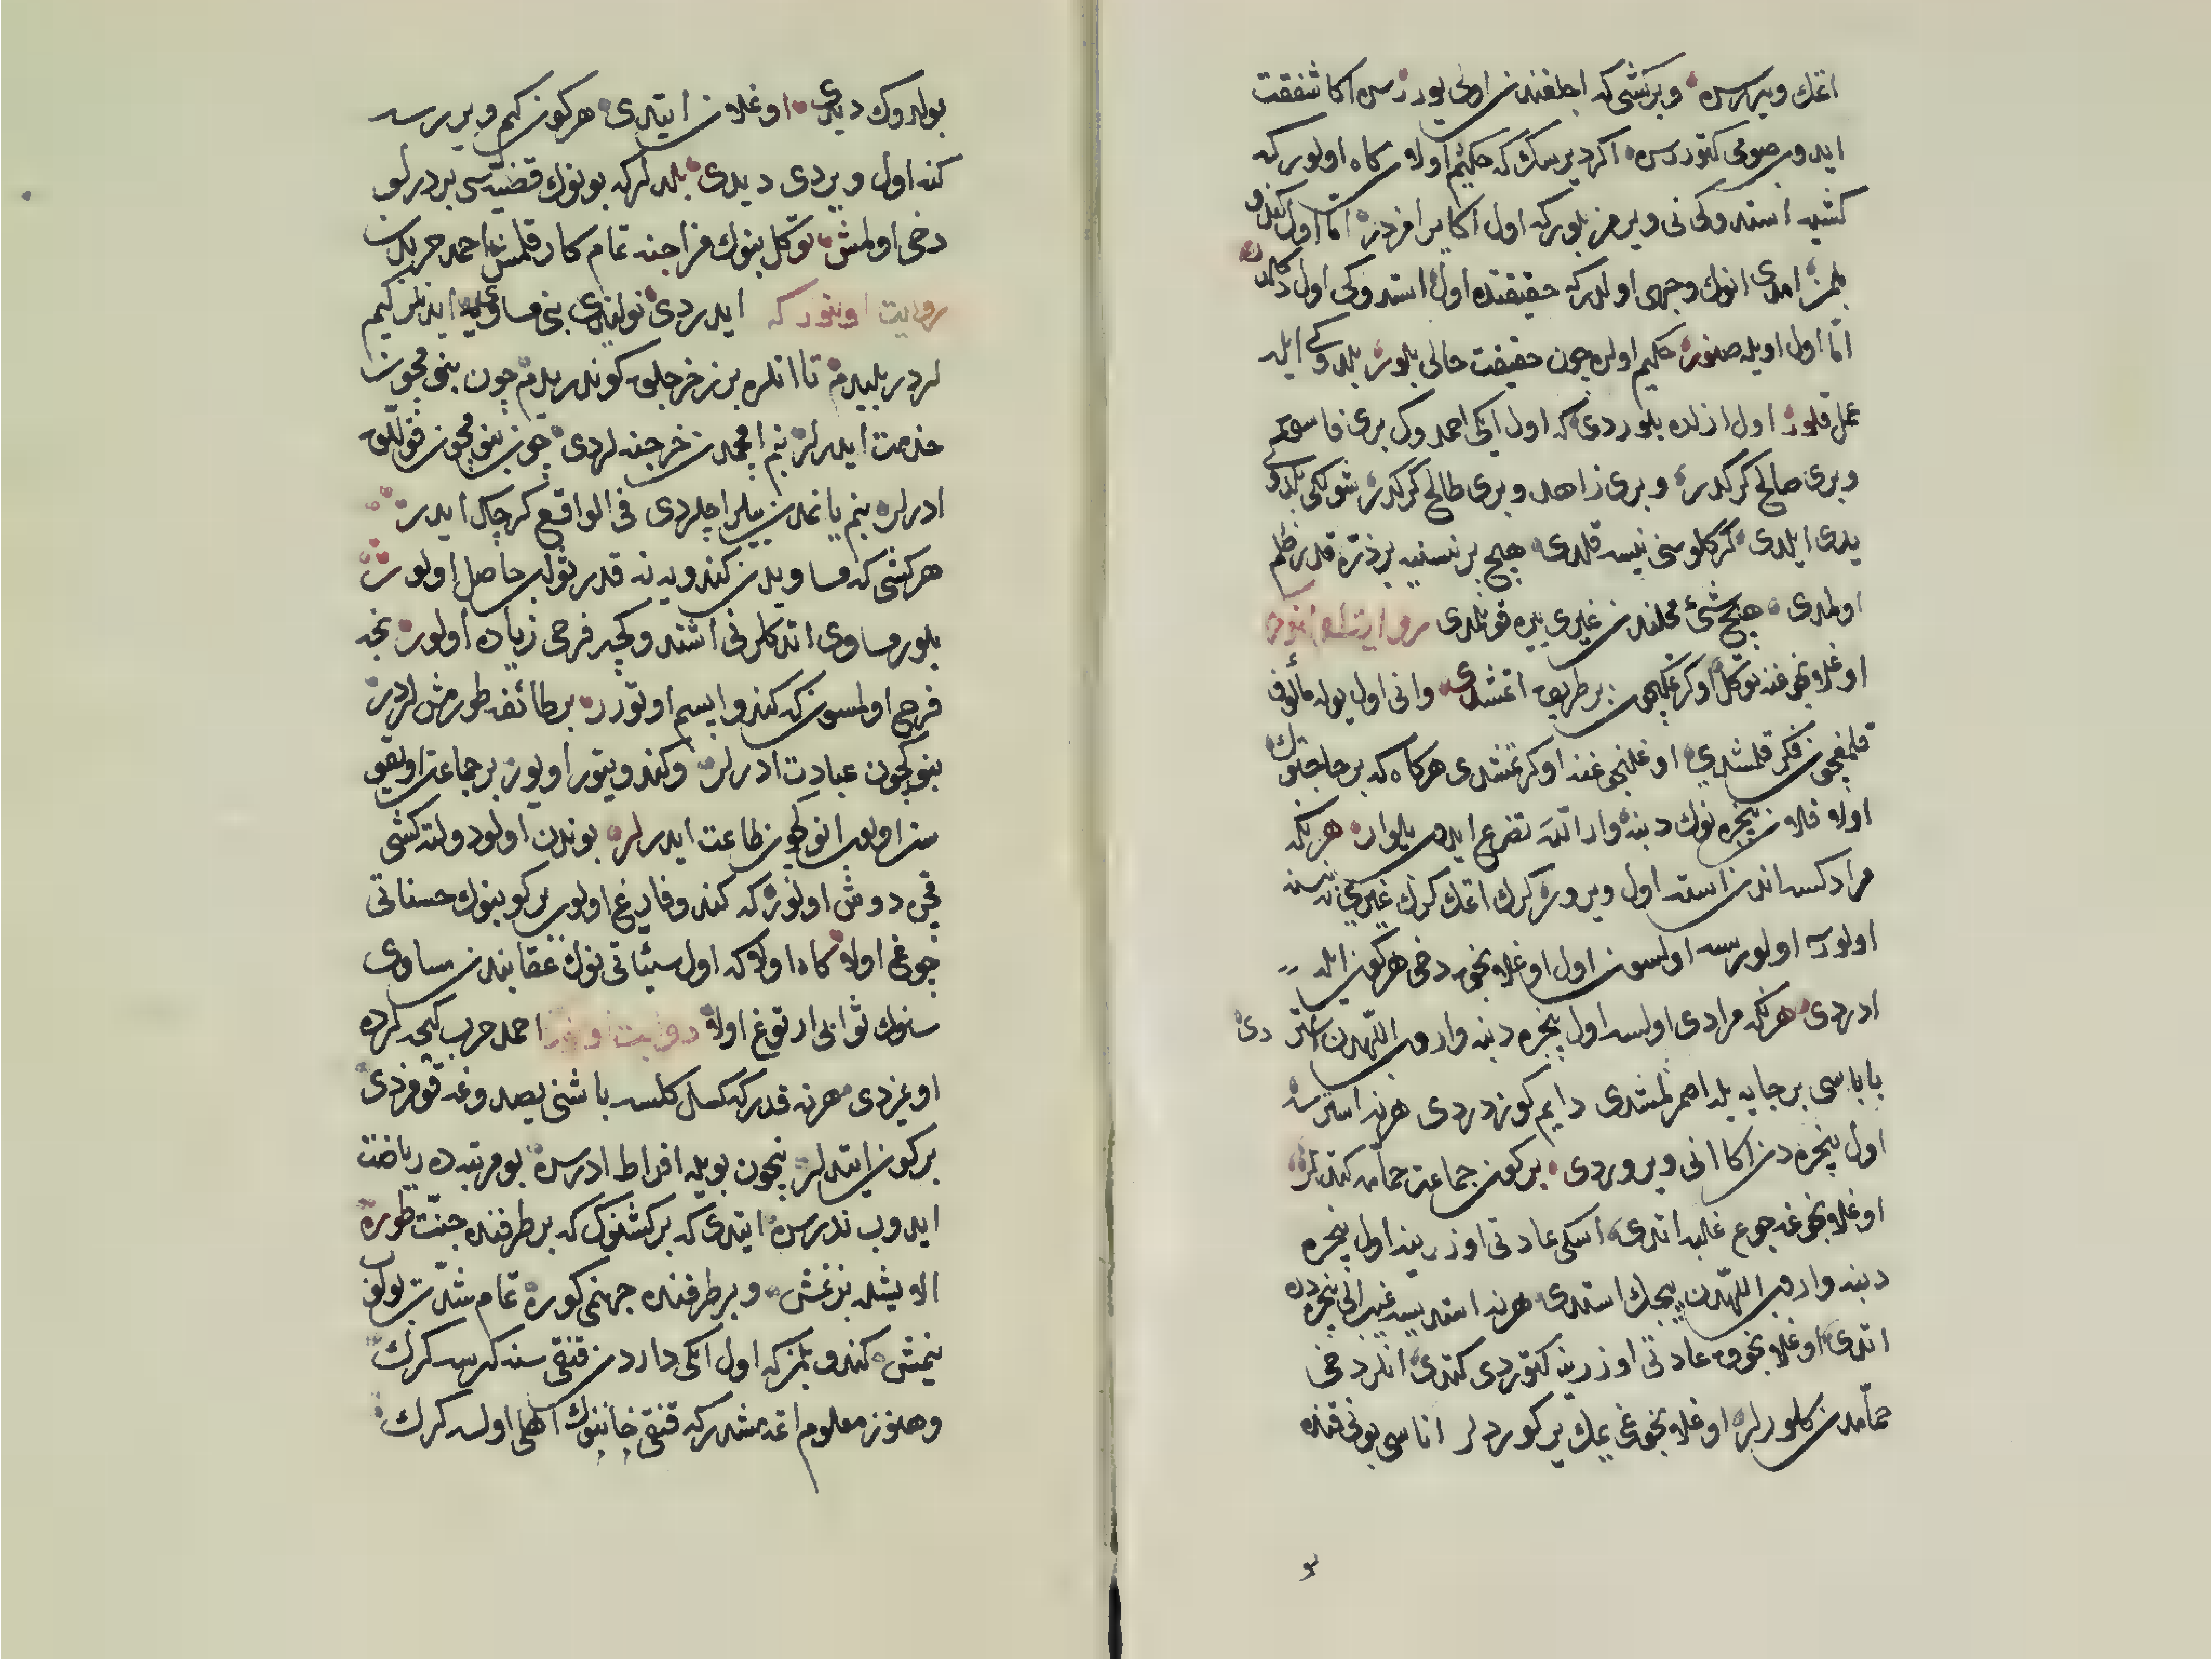 اتمك ويررسن وبر كشى كه اجلغندن اولى يورر سن اكا شفقت
ايدوب صومى كتوررسن اكر ديرسك كه حكيم اولان كاه اولور كه
كشيه استدوكى نى ويرمز بلور كه اول اكا يرامزدر امّا اول كندو
بلمز امدى انوك وجهى اولدر كه حقيقتده اول استدوكى اول دكلدر
امّا اول اويله صنور حكيم اولن چون حقيقت حالى بلور بلدوكى ايله
عمل قلور اول ازلده بلوردى كه اول ايكى احمدوك برى فاسق
وبرى صالح كركدر وبرى زاهد وبرى طالح كركدر شولكى بلدو
يدى ايلدى كركلوسنى نيسه قلدى هيچ بر نسنيه بر ذرّه قدر ظلم
اولمدى هيچ شئ محلندن غيرى يره قونلدى روايتدر
اوغلانجوغنه توكّل اوكرتمكيچون بر طريق اتمشدى وانى اول يوله مألوف
قلمغيچون فكر قلمشدى اوغلنجوغنه اوكرتمشدى هركاه كه بر حاجتوك
اولا فلان پنجره نوك دبنه وار الله تضرع ايدوب يلوار هر نكه
مرادكسه اندن استه اول ويرور كرك اتمك كرك غيرى نسنه
اولور اولورسه اولسون اول اوغلانجق دخى هركون ايله
ادردى هر نكه مرادى اولسه اول پنجره دبنه واروب اللّهدن استر دى
باباسى بر جاريه يله اصمرلمشدى دايم كوزدردى هر نه استرسه
اول پنجره دن اكا انى ويروردى بر كون جماعت حمّامه كتديلر
اوغلانجوغه جوع غلبه اتدى اسكى عادتى اوزرينه اول پنجره
دبنه واروب اللّهدن ييجك استدى هر نه استديسه غيبدن انى پنجره ده
اتدى اوغلانجوق عادتى اوزرينه كتوردى كتدى انلر دخى
حمّامدن كلورلر اوغلانجوغى يمك ير كوردلر اناسى بونى قنده
بولدوك ديدى اوغلان ايتدى هر كون كيم ويررسه
كنه اول ويردى ديدى بلديلر كه بونوك قضيّه سى بر درلو
دخى اولمش توكّل بنوك مزاجنه تمام كار قلمش احمد حربدن
روايت اونور كه ايدردى نولايدى بنى مساوى ايدنلر كيم
لردر بليدم تا انلره بن خرجلق كوندريدم چون بنومچون
خدمت ايدرلر بنم اقچمدن خرجنه لردى چون بنومچون قوللق
ادرلر بنم يانمدن ييلر ايچلردى فى الواقع كرچك ايدر
هر كشى كه مساويدن كندويه نه قدر ثواب حاصل اولور
بلور مساوى اتدكلرنى اشتدوكچه فرحى زياده اولور نجه
فرح اولمسون كه كندو ايسم اوتورر بر طائفه طورمشلردر
بنومچون عبادت ادرلر وكندو يتور اويور بر جماعت اويقو
سز اولوب انوكچون طاعت ايدرلر بوندن اولو دولته كشى
قچن دوش اولور كه كندو فارغ اولوب يركو بنوك حسناتى
چوغ اولا كاه اولا كه اول سيّئاتى نوك عقابندن مساوى
سنوك ثوابى ارتوغ اولا روايت اونور احمد حرب كيجه لرده
اويمزدى هر نه قدر كه كسل كلسه باشنى يصدوغه قومزدى
بر كون ايتديلر نچون بويله افراط ادرسن بو مرتبه ده رياضت
ايدوب ندرسن ايتدى كه بر كشنوك كه بر طرفنده جنّت طوره
الايشله بزنمش وبر طرفنده جهنمى كوره تمام شدّت بولوب
ينمش كندو بلمز كه اول ايكى داردن قنقى سنه كرسه كرك
وهنوز معلوم اتمه مشدر كه قنقى خانه نوك اهلى اولسه كرك